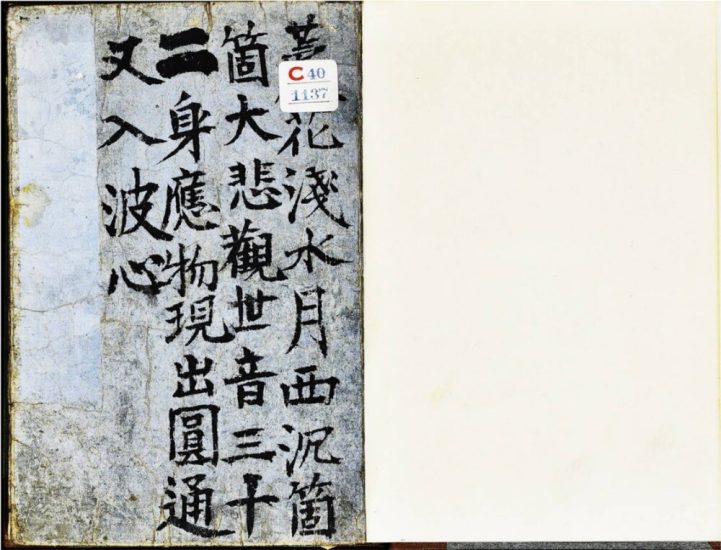 花淺水月西沉箇
箇大悲觀世音三十
二身應物現出圓通
又入波心
C 40
1137